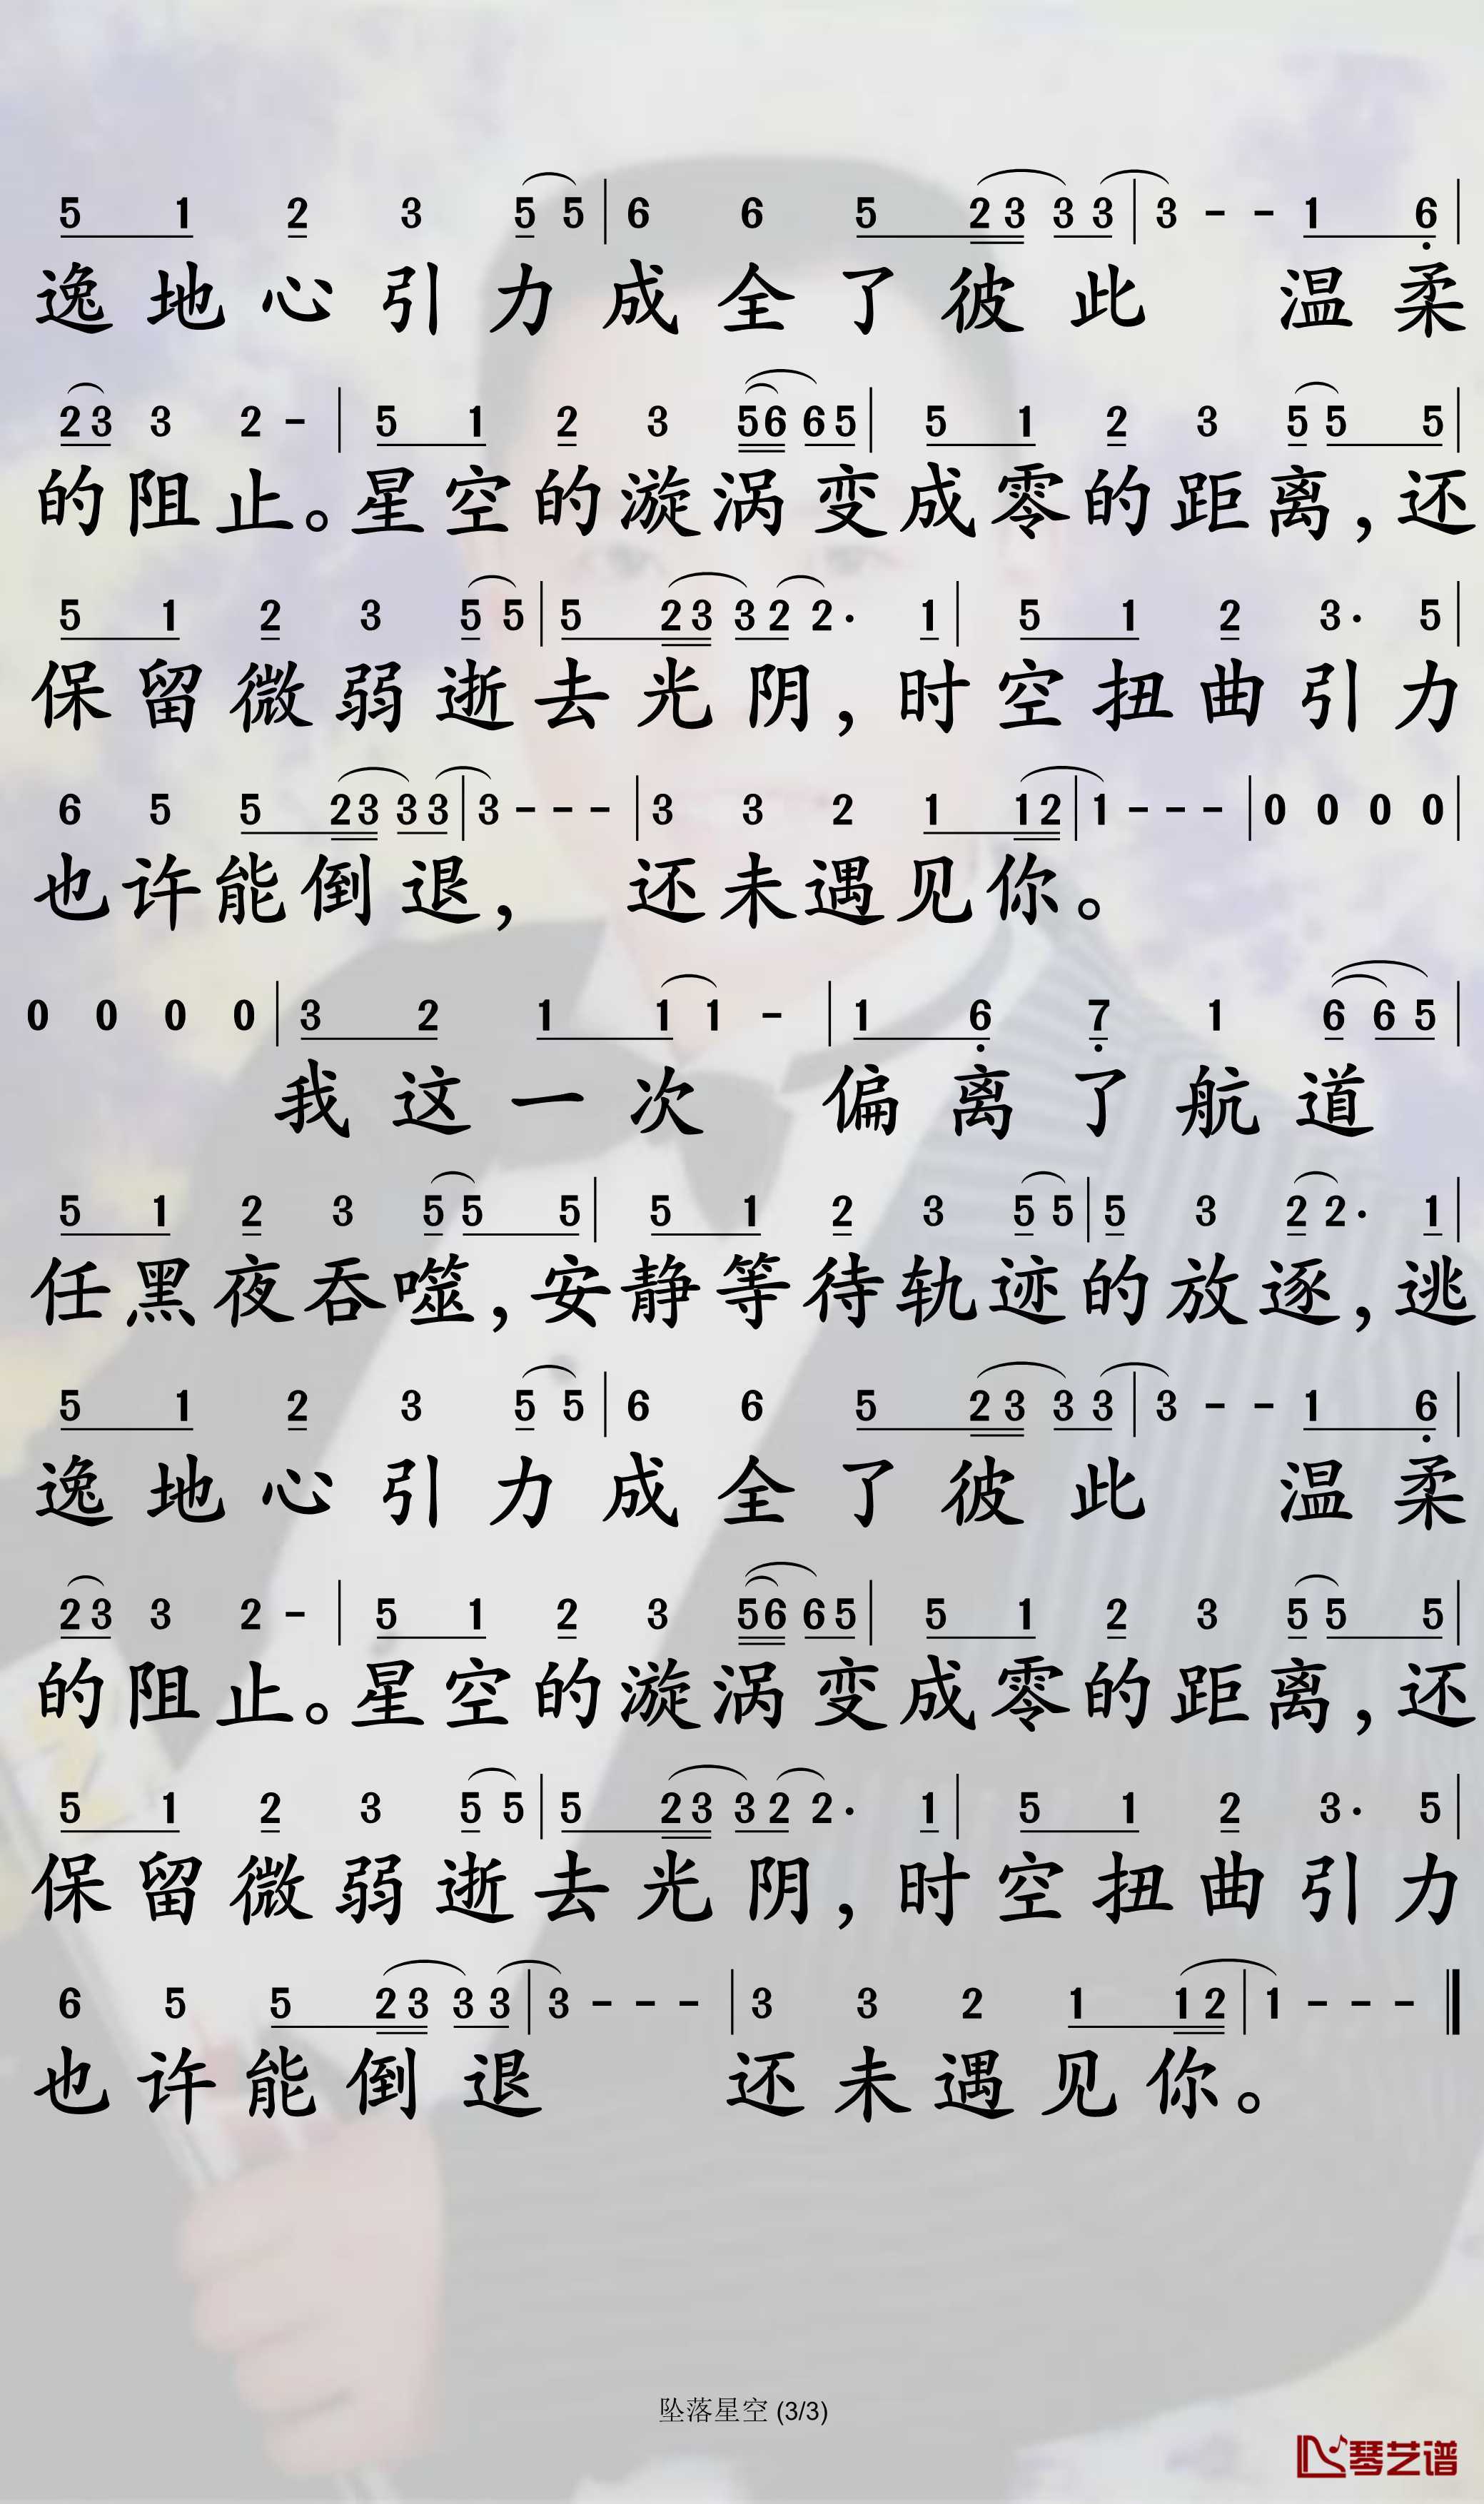 5 1 2 3 5 5 | 6 6 5 2 3 3 3 | 3 - - 1 6 |
逸地心引力成全了彼此 温柔
2 3 3 2 - | 5 1 2 3 5 6 6 5 | 5 1 2 3 5 5 5 |
的阻止。星空的漩涡变成零的距离,还
5 1 2 3 5 5 | 5 2 3 3 2 2· 1 | 5 1 2 3· 5 |
保留微弱逝去光阴,时空扭曲引力
6 5 5 2 3 3 3 | 3 - - - | 3 3 2 1 1 2 | 1 - - - | 0 0 0 0 |
也许能倒退, 还未遇见你。
0 0 0 0 | 3 2 1 1 1 - | 1 6 7 1 6 6 5 |
我这一次 偏离了航道
5 1 2 3 5 5 5 | 5 1 2 3 5 5 | 5 3 2 2· 1 |
任黑夜吞噬,安静等待轨迹的放逐,逃
5 1 2 3 5 5 | 6 6 5 2 3 3 3 | 3 - - 1 6 |
逸地心引力成全了彼此 温柔
2 3 3 2 - | 5 1 2 3 5 6 6 5 | 5 1 2 3 5 5 5 |
的阻止。星空的漩涡变成零的距离,还
5 1 2 3 5 5 | 5 2 3 3 2 2· 1 | 5 1 2 3· 5 |
保留微弱逝去光阴,时空扭曲引力
6 5 5 2 3 3 3 | 3 - - - | 3 3 2 1 1 2 | 1 - - - ‖
也许能倒退 还未遇见你。
坠落星空 (3/3)
琴艺谱